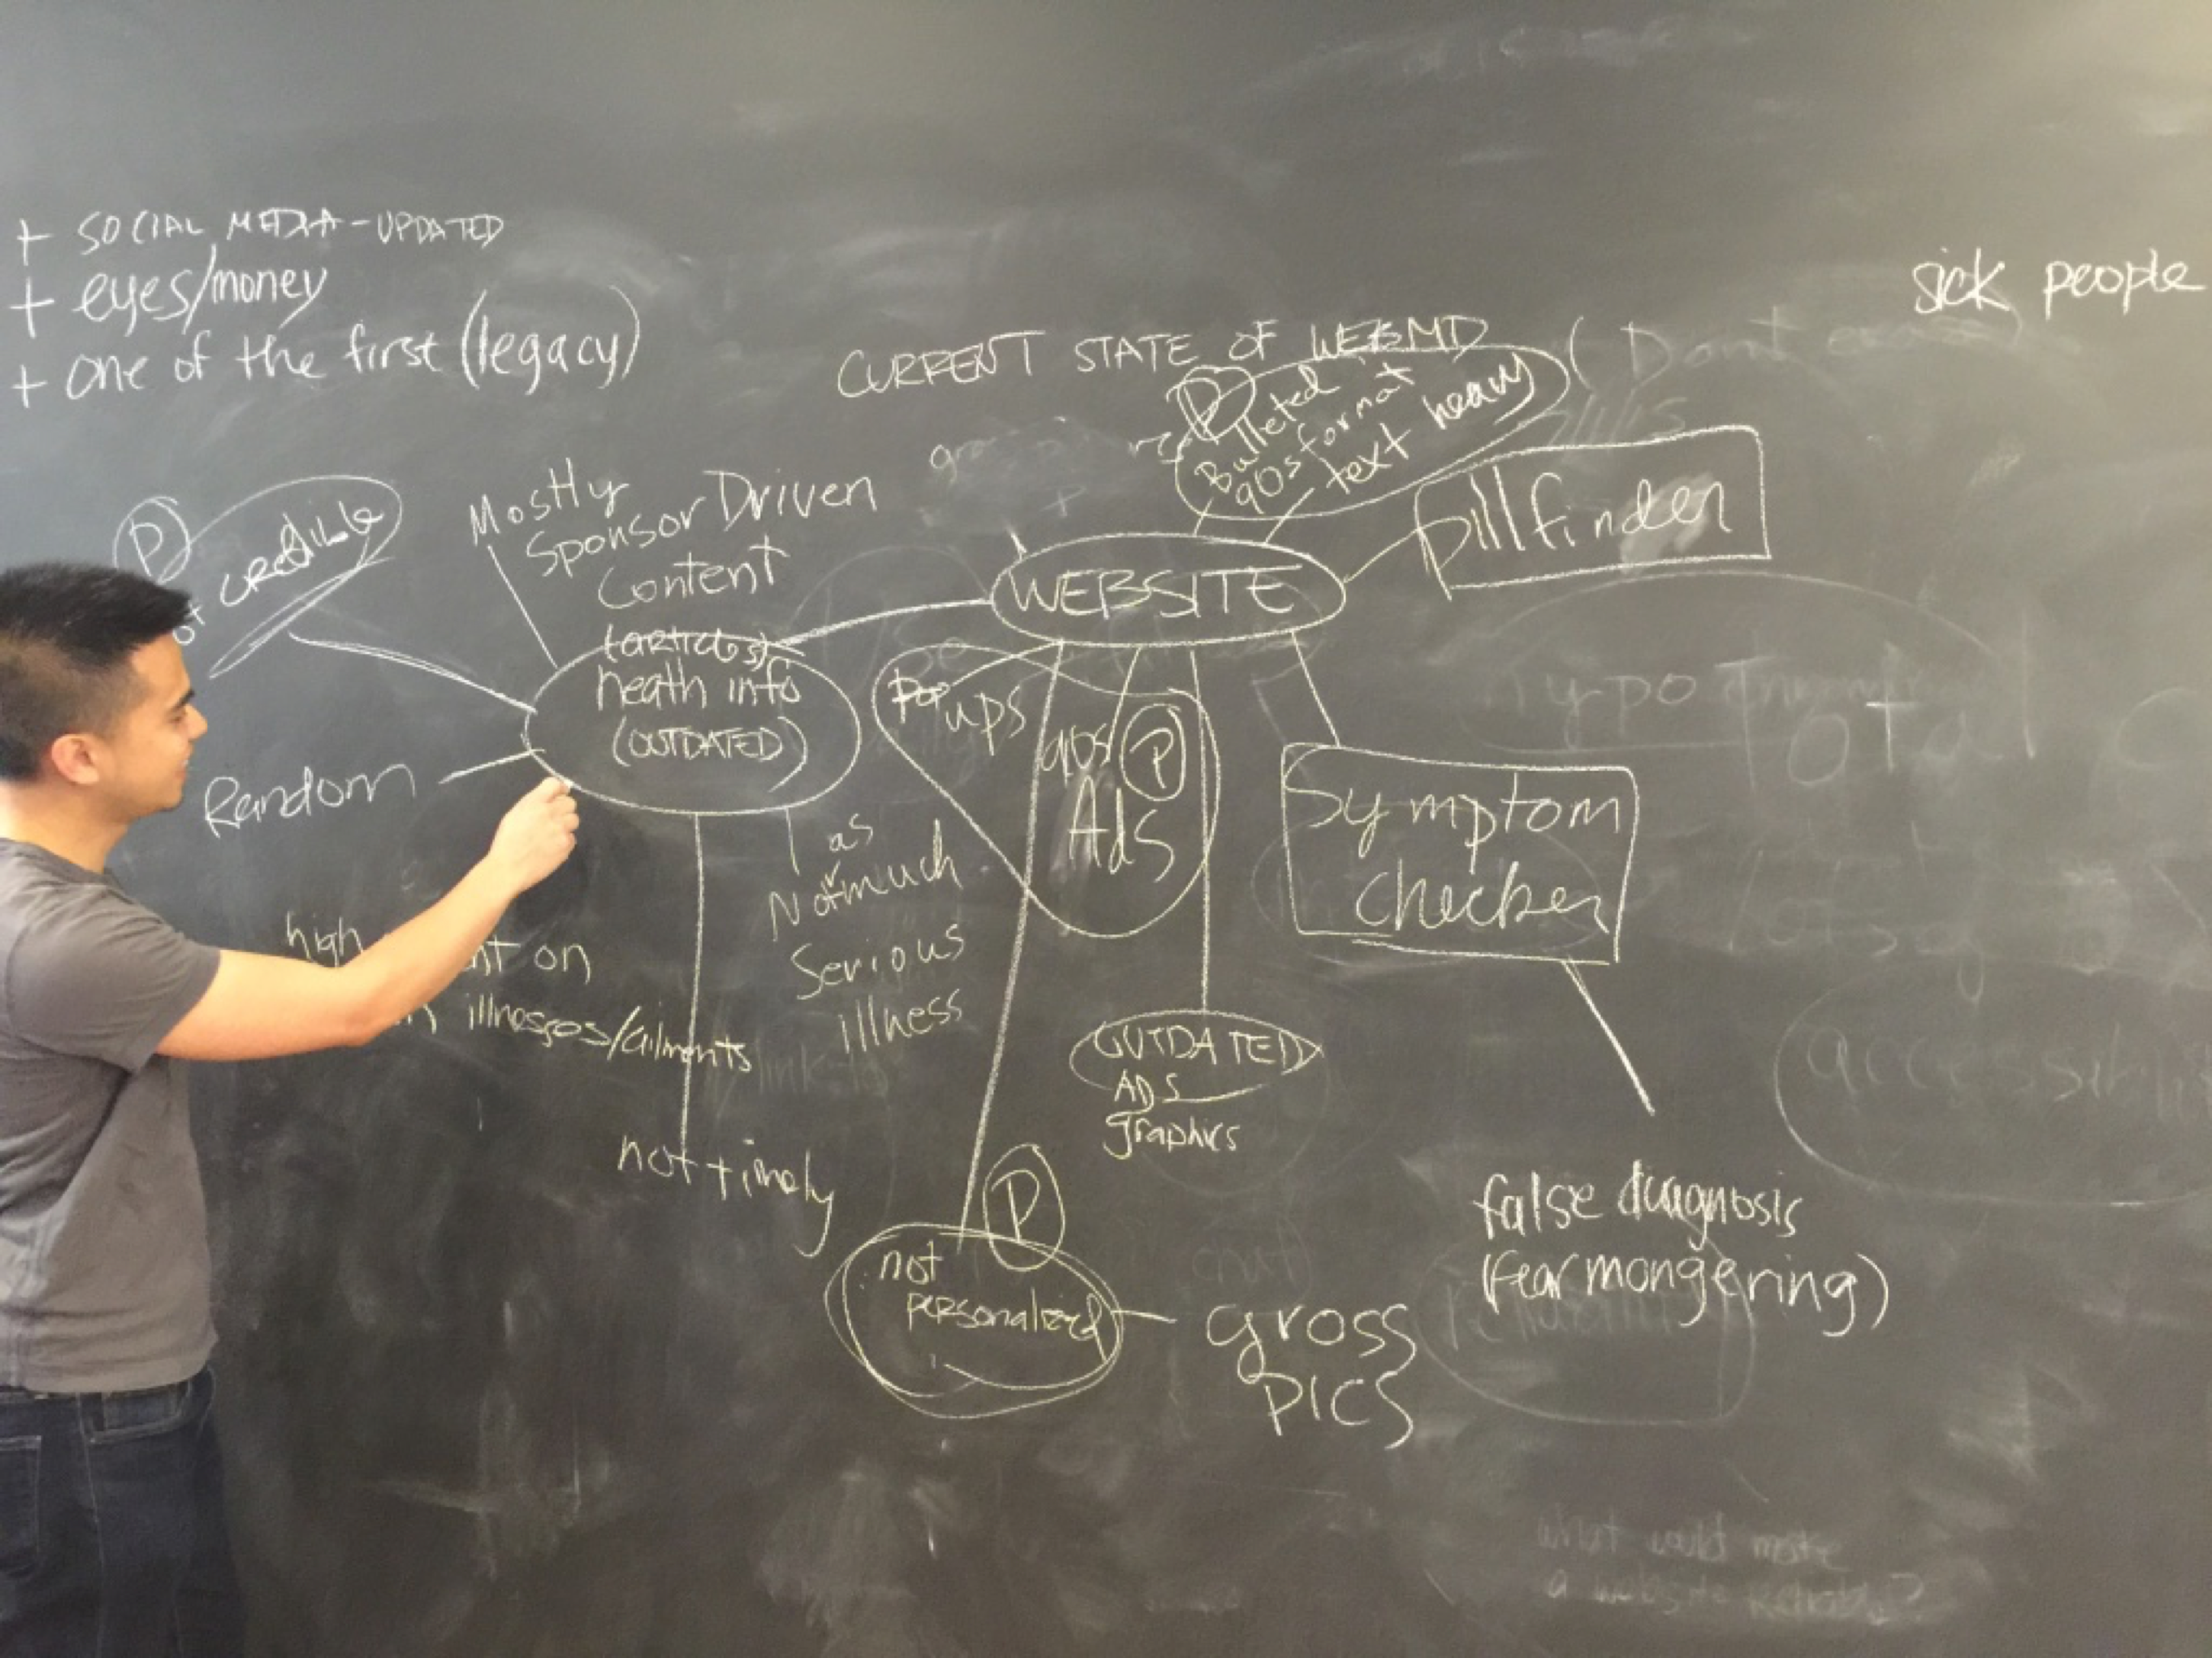 + SOCIAL MEDIA-UPDATED
+ eyes/money
+ one of the first (legacy)
sick people
CURRENT STATE OF WEBMD
(Dont
P
Bulleted
90s format
text heavy
pillfinder
P
credible
Mostly
Sponsor Driven
Content
WEBSITE
(articles)
heath info
(OUTDATED)
Random
Pop
ups
90s
P
Ads
Symptom
checker
as
Not much
Serious
illness
high
on
illnesses/ailments
not timely
OUTDATED
ADS
graphics
P
not
personalized
gross
PICS
false diagnosis
(fear mongering)
total
accessibili
chat
what would make
a website reliable?